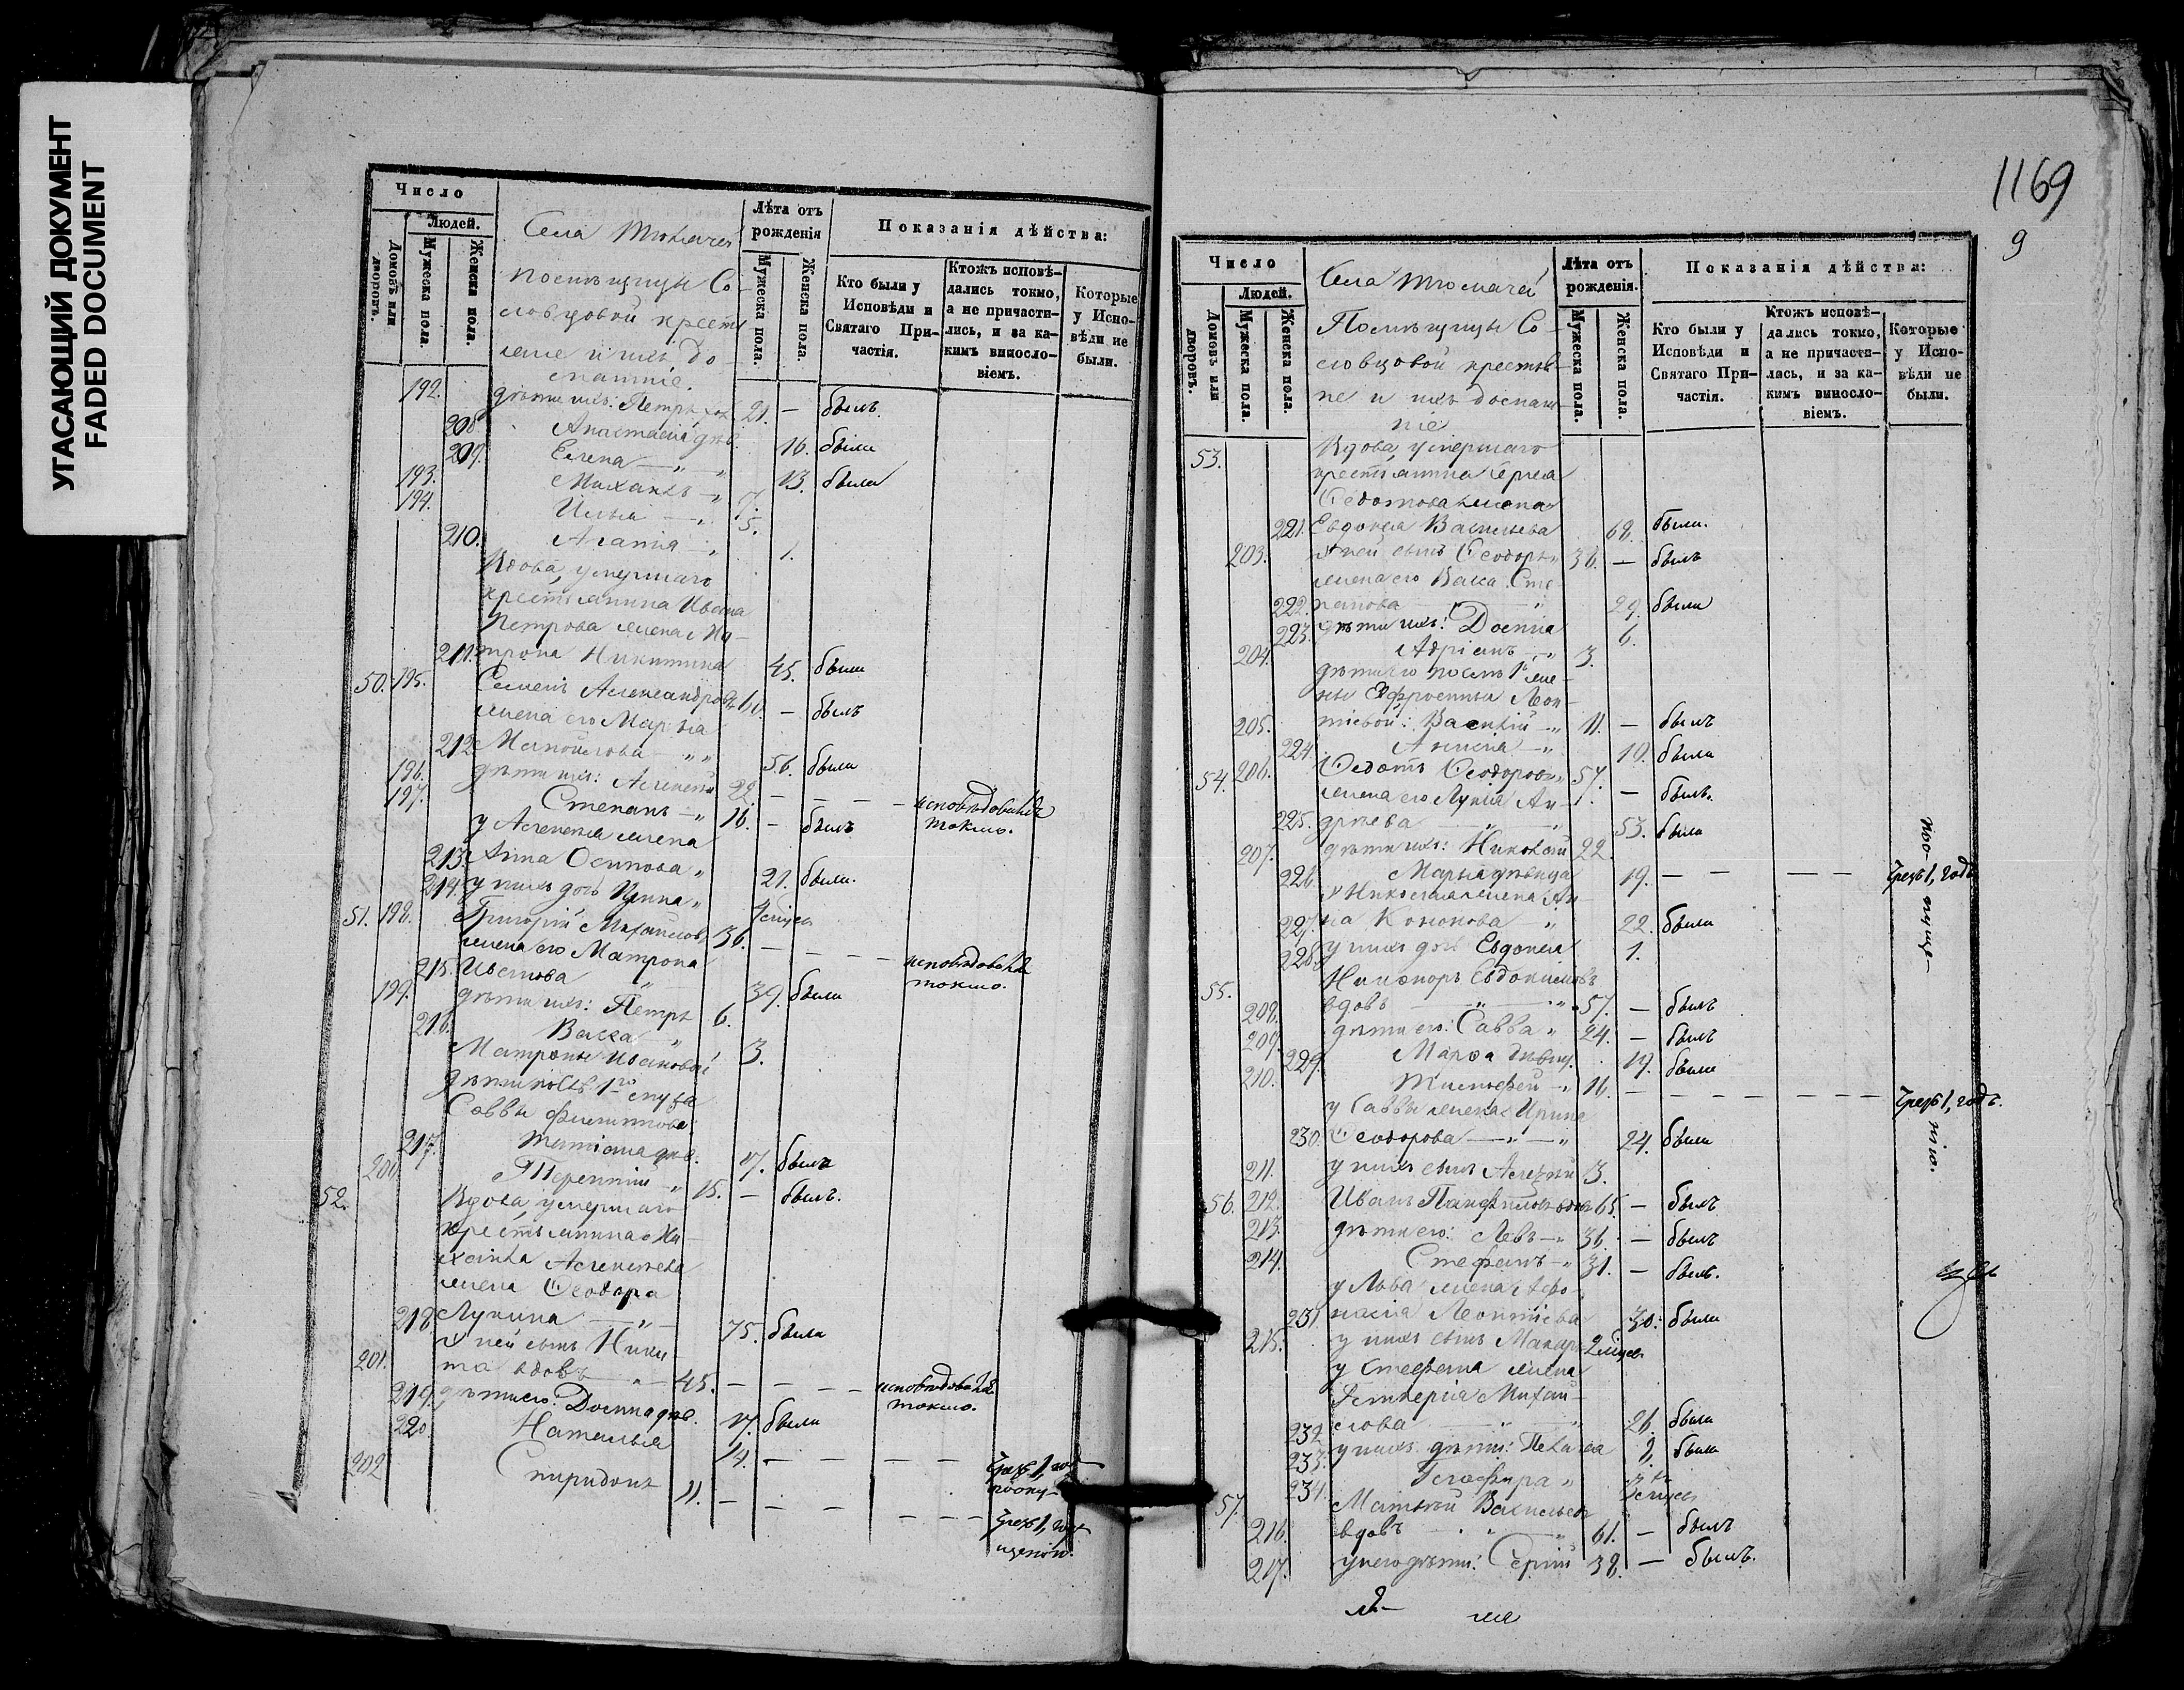 УГАСАЮЩИЙ ДОКУМЕНТ
FADED DOCUMENT
Число
Людей.
Домовъ или дворовъ.
Мужеска пола.
Женска пола.
Лѣта отъ рожденія
Мужеска пола.
Женска пола.
Показанія дѣйства:
Кто были у Исповѣди и Святаго Причастія.
Ктожъ исповѣдались токмо, а не причастились, и за какимъ винословіемъ.
Которые у Исповѣди не были.
Села
помѣщицы Со-
словцовой кресть
яне и ихъ до-
машніе.
192. дѣти ихъ: Петръ 21. — былъ.
208. Анастасія 16. была
209. Елена — " 13. была
193. Михаилъ — " 7.
194. Илья — " 5.
210. Агапія — " 1.
Вдова умершаго
крестьянина Ивана
Петрова жена Ма-
211. трона Никитина 45. была
50. 195. Семенъ Александровъ 60. — былъ
жена его Марѳа
212. Мануйлова — " " 56. была
196. дѣти ихъ: Алексѣй 22. — — — исповѣдовался токмо.
197. Степанъ — " 16. — былъ
у Алексѣя жена
213. Анна Осипова " 21. была.
214. у нихъ дочь Ирина "
51. 198. Григорій Михайловъ 36. — — — исповѣдовался токмо.
жена его Матрона
215. Иванова " 39. была
199. дѣти ихъ: Петръ 6.
216. Васса " 3.
Матроны Ивановой
дѣти 1го мужа
Саввы Филиппова
217. Татіана 17. была
200. Терентій " 15. — былъ.
52. Вдова умершаго
крестьянина Ми-
хаила Алексѣева
жена Ѳеодора
218. Лукина — " — 75. была
у ней сынъ Ники-
201. та вдовъ — " — 45. — — — исповѣдовался токмо.
219. дѣти его: Домна 17. была
220 Наталья 14. — — — — Чрезъ 1, годъ
202 Спиридонъ 11. — — — — — Чрезъ 1, годъ
1169
9
Число
Людей.
Домовъ или дворовъ.
Мужеска пола.
Женска пола.
Лѣта отъ рожденія.
Мужеска пола.
Женска пола.
Показанія дѣйства:
Кто были у Исповѣди и Святаго Причастія.
Ктожъ исповѣдались токмо, а не причастились, и за какимъ винословіемъ.
Которые у Исповѣди не были.
Села
Помѣщицы Со-
словцовой крестья-
не и ихъ домаш-
ніе
53. Вдова умершаго
крестьянина Сергея
Ѳедотова жена
221. Евдокія Васильева 68. была.
203. у ней сынъ Ѳеодоръ " 36. — былъ
жена его Васса Сте-
222. панова " 29. была
223. дѣти ихъ: Домна 6.
204. Адріанъ — " 3.
дѣти его 1й же-
ны Ефросиньи Леон-
205. тіевой: Василій — " 11. — былъ
224. — " 19. была
54. 206. Ѳедотъ Ѳеодоровъ 57. — былъ.
жена его Лукія Ан-
225. дреева " 53. была
207. дѣти ихъ: Николай 22.
226. Марья дѣвица 19. — — — — Чрезъ 1, годъ
у Николая жена Ан-
227. на Кононова " 22. была
228. у нихъ дочь Евдокія 1.
55. Никаноръ Евдокимовъ
208. вдовъ — " — " 57. — былъ
209. дѣти его: Савва " 24. — былъ
229. Марѳа 19. была
210. Тимоѳей — " 16. — — — — Чрезъ 1, годъ.
у Саввы жена Ирина
230. Ѳеодорова — " — " 24. была
211. у нихъ сынъ Алексѣй 3.
56. 212. Иванъ Панфиловъ вдовъ 65. — былъ
213. дѣти его: Левъ — " 36. — былъ
214. Стефанъ — " 31. — былъ.
у Льва жена Афа-
231. насія Леонтіева 30. была
215. у нихъ сынъ Макаръ 2 мѣсяца
у Стефана жена
Гликерія Михай-
232. лова " " 26. была
233. у нихъ дѣти: Пелагея была
234. Глафира "
57. Матвѣй Васильевъ
216. вдовъ " — " 61. — былъ
217. у него дѣти: Сергій 38. — былъ.